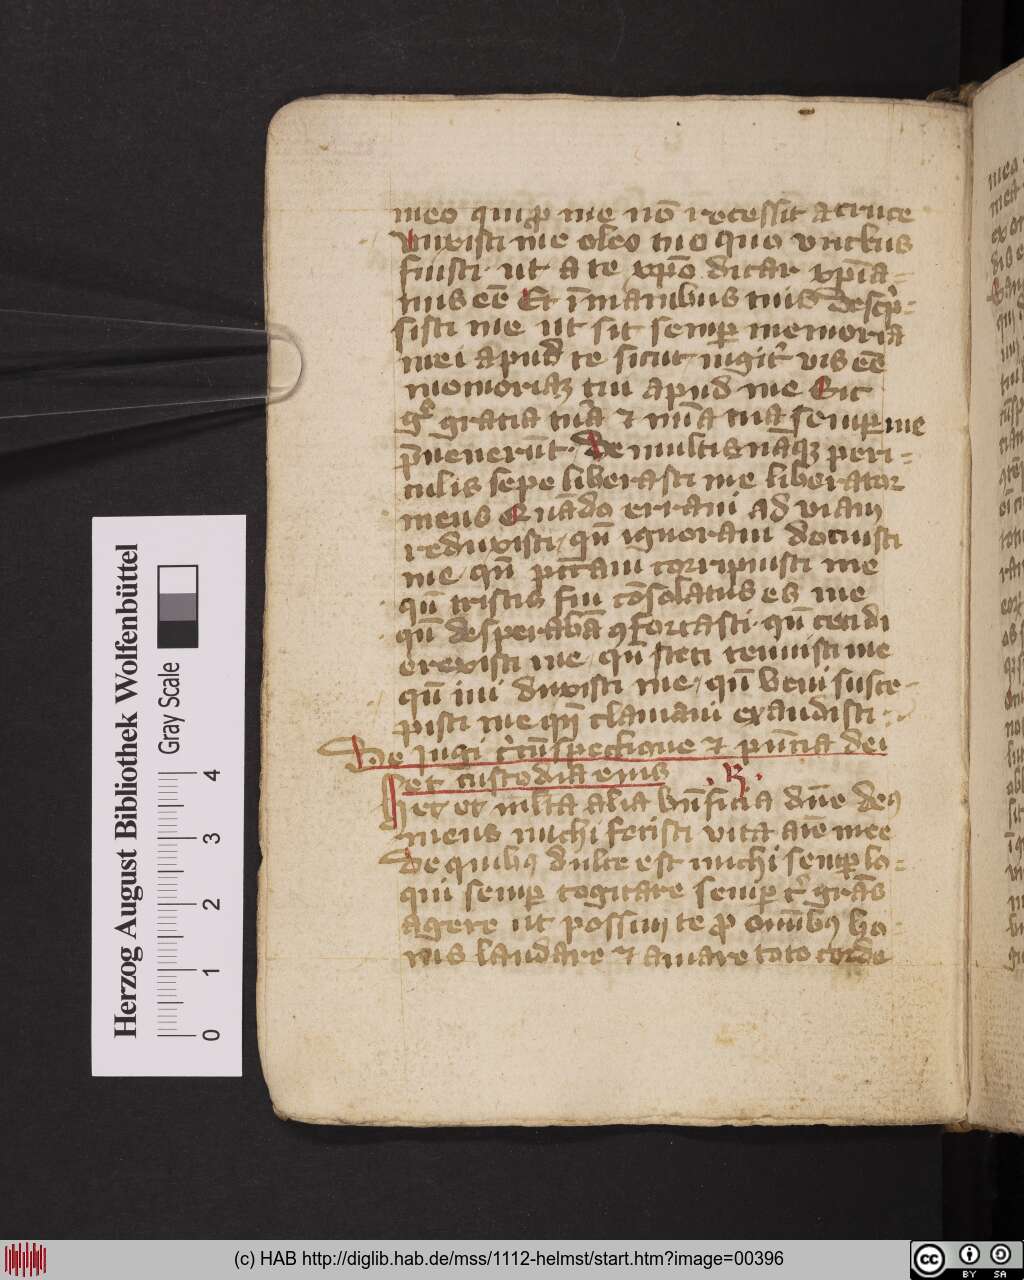 meo qui ꝓ me nō recessit a cruce
Vnxisti me oleo tuo quo vnctus
fuisti ut a te xp̄o dicar xp̄ia-
nus eē Et ī manibus tuis descp̄-
sisti me ut sit semꝑ memoria
mei apud te sicut iugit᷑ vis eē
memoria tui apud me Sic
gͦ gratia tua ⁊ mīa tua semꝑ me
p̄uenerūt. De multis naqꝫ peri-
culis sepe liberasti me liberator
meus Quādo erraui ad viam
reduxisti qn̄ ignoraui docuisti
me qn̄ pctaui corripuisti me
qn̄ tristis fui cōsolatus es me
qn̄ desperabā ꝯfortasti qn̄ cecidi
erexisti me qn̄ steti tenuisti me
qn̄ iui duxisti me qn̄ veni susce-
pisti me qn̄ clamaui exaudisti
De Jugi circūspectione ⁊ pn̄cia dei
et custodia eius
Hec et mlta alia bn̄ficia dn̄e deꝰ
meus michi fecisti vita aīe mee
De quibꝰ dulce est michi semꝑ lo-
qui semꝑ cogitare semꝑ grās
agere ut possim te ꝓ omībꝰ bo-
nis laudare ⁊ amare toto corde
Herzog August Bibliothek Wolfenbüttel
Gray Scale
0 1 2 3 4
(c) HAB http://diglib.hab.de/mss/1112-helmst/start.htm?image=00396
cc BY SA